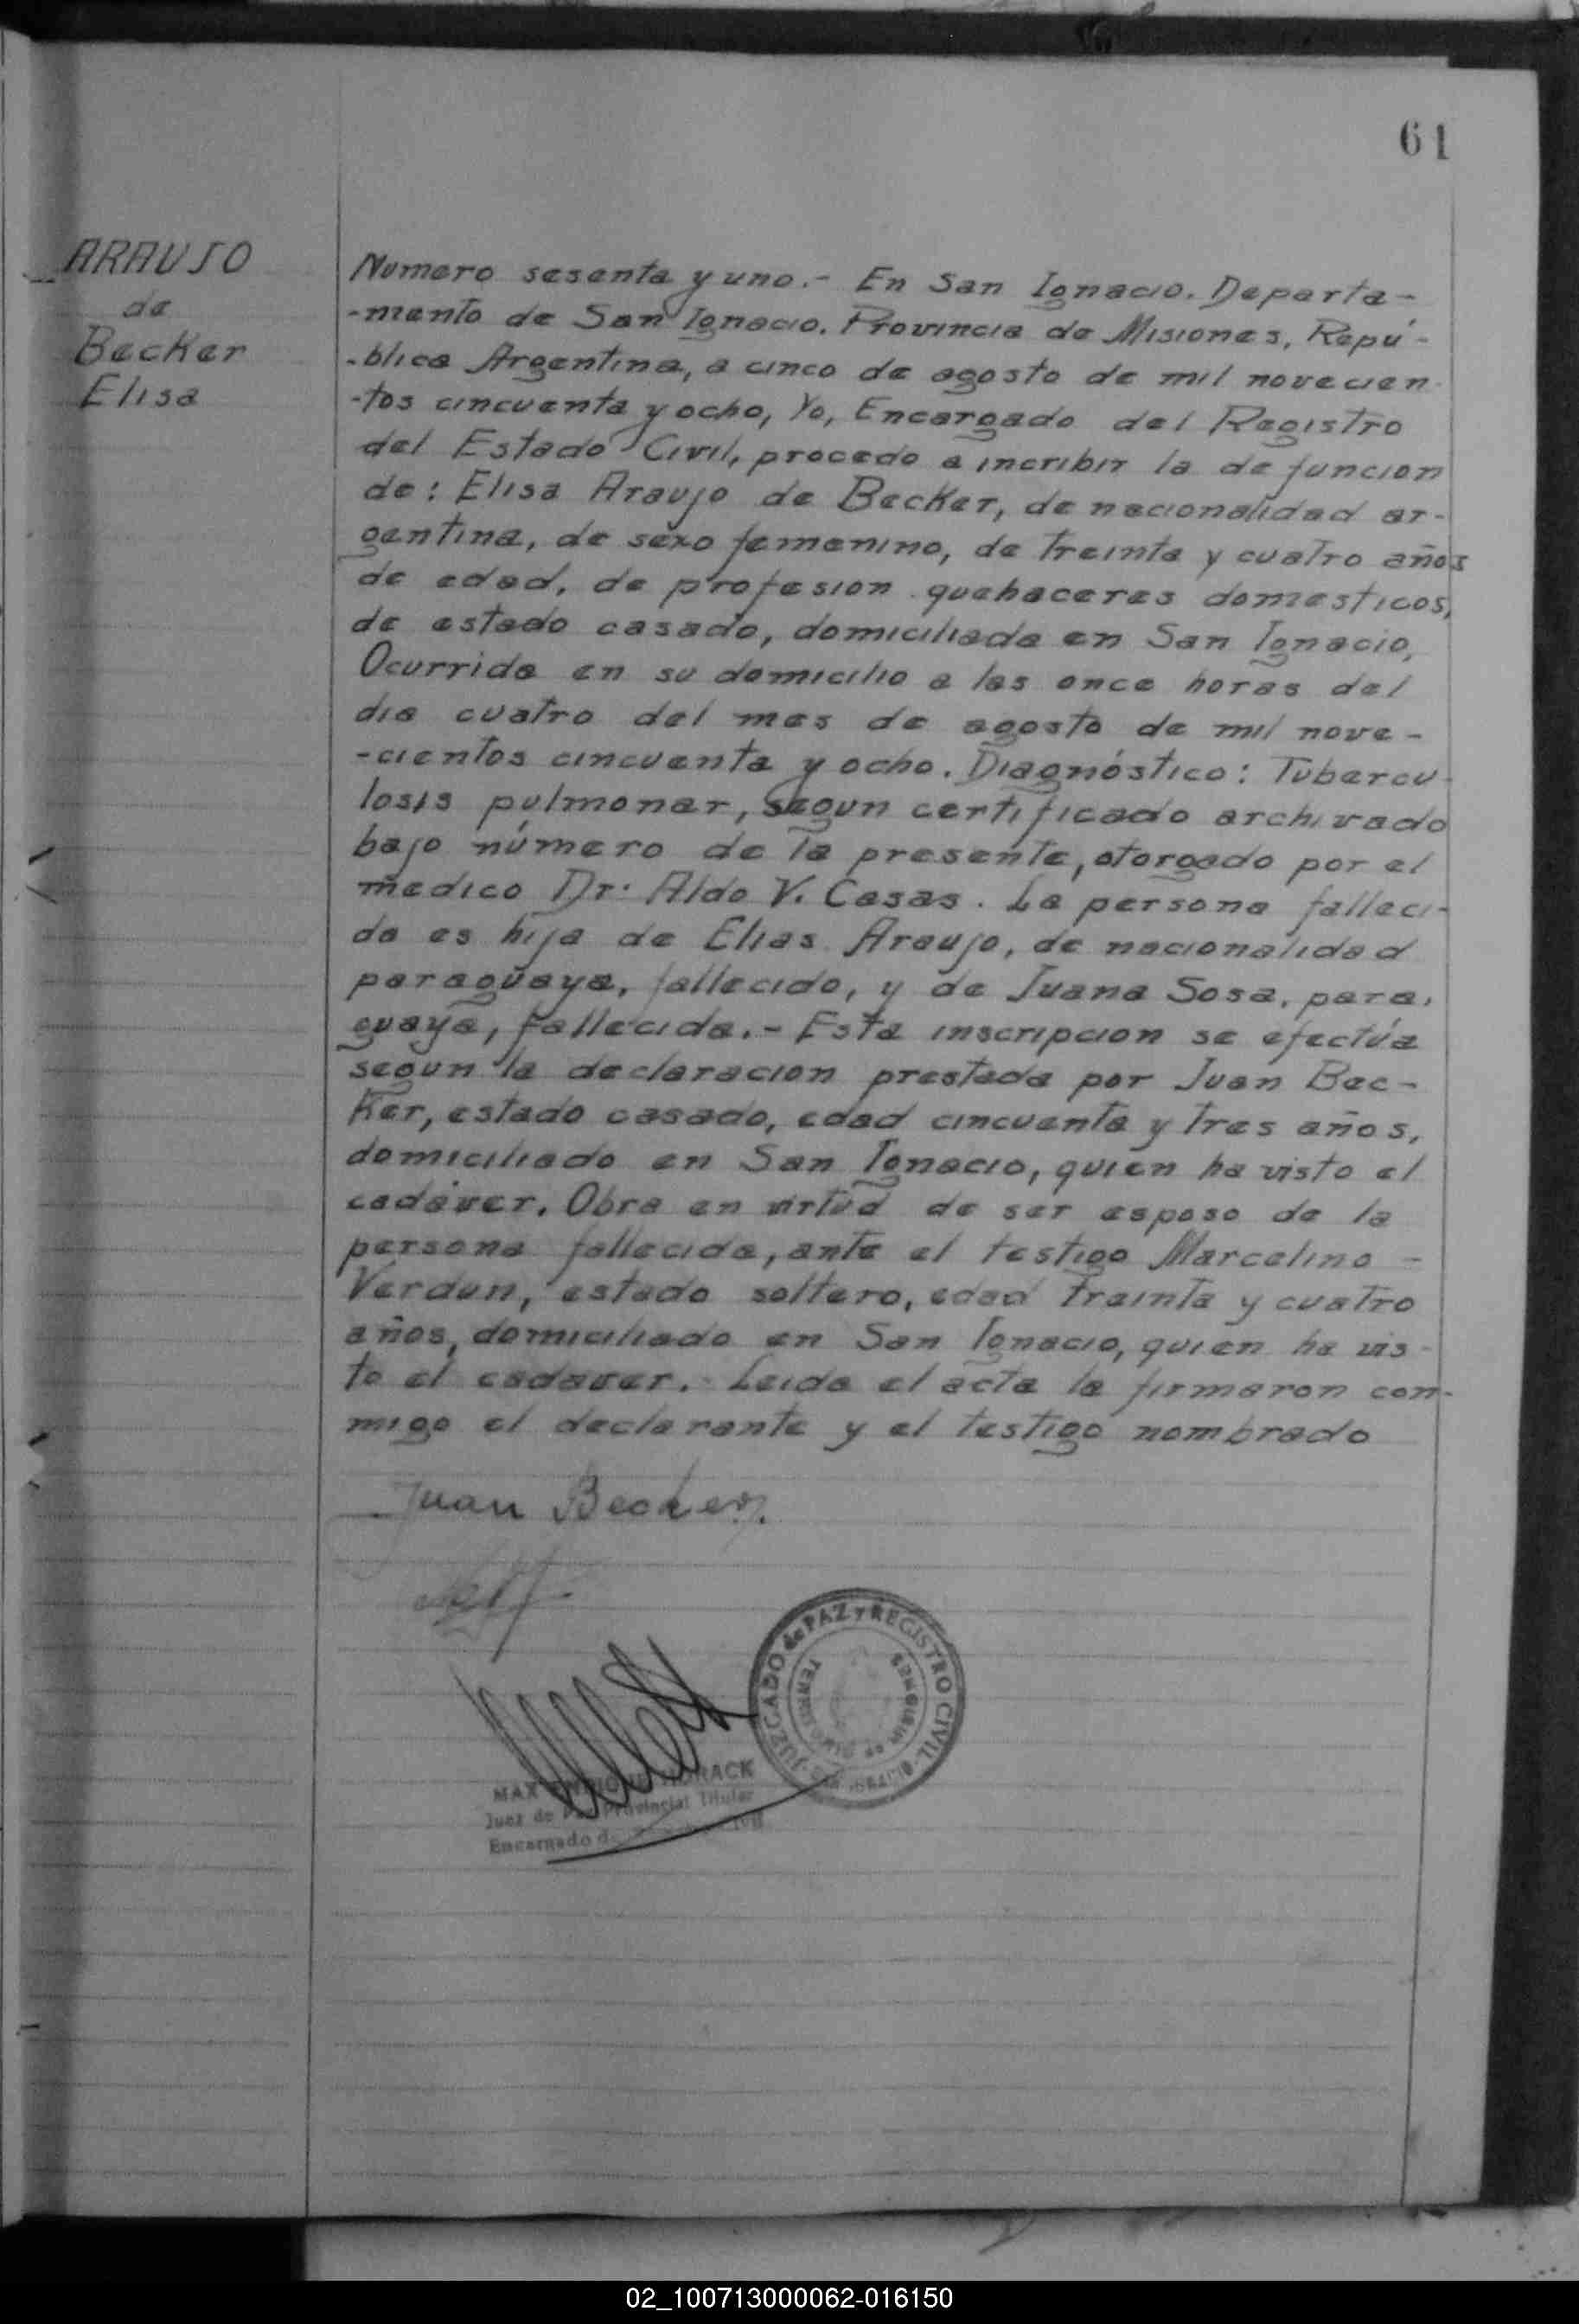 61
ARAUJO
de
Becker
Elisa
Numero sesenta y uno.- En San Ignacio. Departa-
-mento de San Ignacio. Provincia de Misiones, Repú-
-blica Argentina, a cinco de agosto de mil novecien-
-tos cincuenta y ocho, Yo, Encargado del Registro
del Estado Civil, procedo a incribir la defuncion
de: Elisa Araujo de Becker, de nacionalidad ar-
gentina, de sexo femenino, de treinta y cuatro años
de edad, de profesion quehaceres domesticos,
de estado casado, domiciliada en San Ignacio,
Ocurrida en su domicilio a las once horas del
dia cuatro del mes de agosto de mil nove-
-cientos cincuenta y ocho. Diagnóstico: Tubercu-
losis pulmonar, segun certificado archivado
bajo número de la presente, otorgado por el
medico Dr. Aldo V. Casas. La persona falleci-
da es hija de Elias Araujo, de nacionalidad
paraguaya, fallecido, y de Juana Sosa, para.
guaya, fallecida.- Esta inscripcion se efectúa
segun la declaracion prestada por Juan Bec-
ker, estado casado, edad cincuenta y tres años,
domiciliado en San Ignacio, quien ha visto el
cadáver. Obra en virtud de ser esposo de la
persona fallecida, ante el testigo Marcelino -
Verdun, estado soltero, edad treinta y cuatro
años, domiciliado en San Ignacio, quien ha vis-
to el cadaver. Leida el acta la firmaron con-
migo el declarante y el testigo nombrado
Juan Becker.
JUZGADO de PAZ y REGISTRO CIVIL
TERRITORIO DE MISIONES
MAX ENRIQUE HORACK
Juez de Paz Provincial Titular
Encargado d Civil
02_100713000062-016150